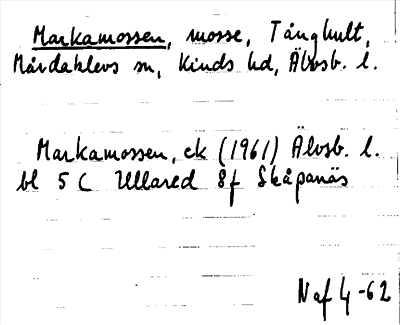 Markamossen, mosse, Tånghult,
Mårdaklevs sn, Kinds hd, Älvsb. l.
Markamossen, ek (1961) Älvsb. l.
bl 5 C Ullared 8f Skåpanäs
Naf 4-62